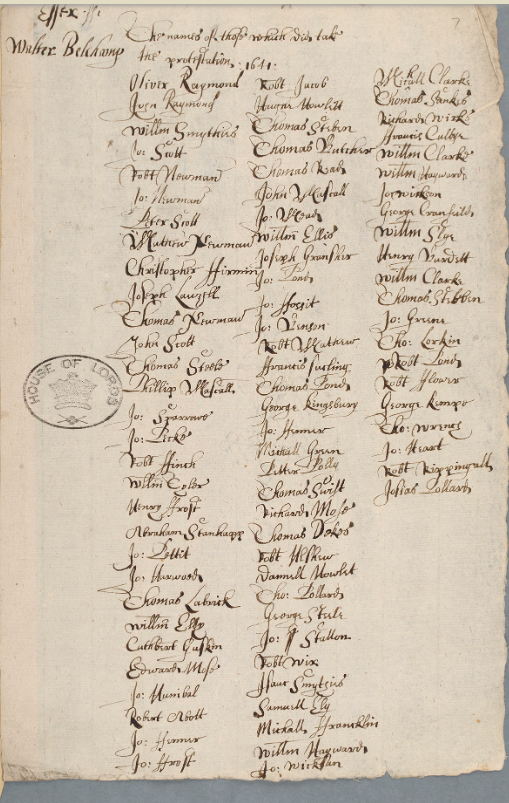 Essex ss:
7
Walter Belchamp
The names of those which did take
the protestation: 1641:
Oliver Raymond
Jo: Scott
Robt Newman
Jo: Newman
Peter Scott
Mathew Newman
Christopher Firmin
Thomas Newman
John Scott
Thomas Steele
Phillip Mascall
Jo: Sparrowe
Robt Finch
Henry Frost
Abraham Stanhapp
Jo: Pettit
Jo: Harwood
Thomas Labrick
Willm Elly
Cuthbert Gaskin
Edward Mose
Jo: Hunibal
Robert Abott
Jo: Hemer
Jo: Frost
Robt Jacob
Thomas Steben
Thomas Butcher
Thomas Read
John Mascall
Jo: Mead
Willm Ellis
Jo: Pond
Jo: Benson
Robt Mathew
Thomas Pond
George Kingsbury
Jo: Hemer
Michall Green
Petter Polly
Thomas Swift
Richard Mose
Thomas Dekes
Daniell Howlet
Tho: Pollard
George Steele
Jo: Stallon
Robt Wix
Isaac Smythies
Samuell Ely
Michall Francklin
Willm Hayward
Jo: Wickson
Micall Clarke
Thomas Sankes
Richard Wickes
Willm Clarke
Willm Hayward
Jo: Wickson
George Cranfield
Willm Elye
Henry Vardell
Willm Clarke
Thomas Stebben
Jo: Greene
Tho: Lorkin
Robt Pond
Robt Flower
George Kempe
Tho: Wrenc
Jo: Heart
Robt Rippingall
Josias Pollard
HOUSE OF LORDS